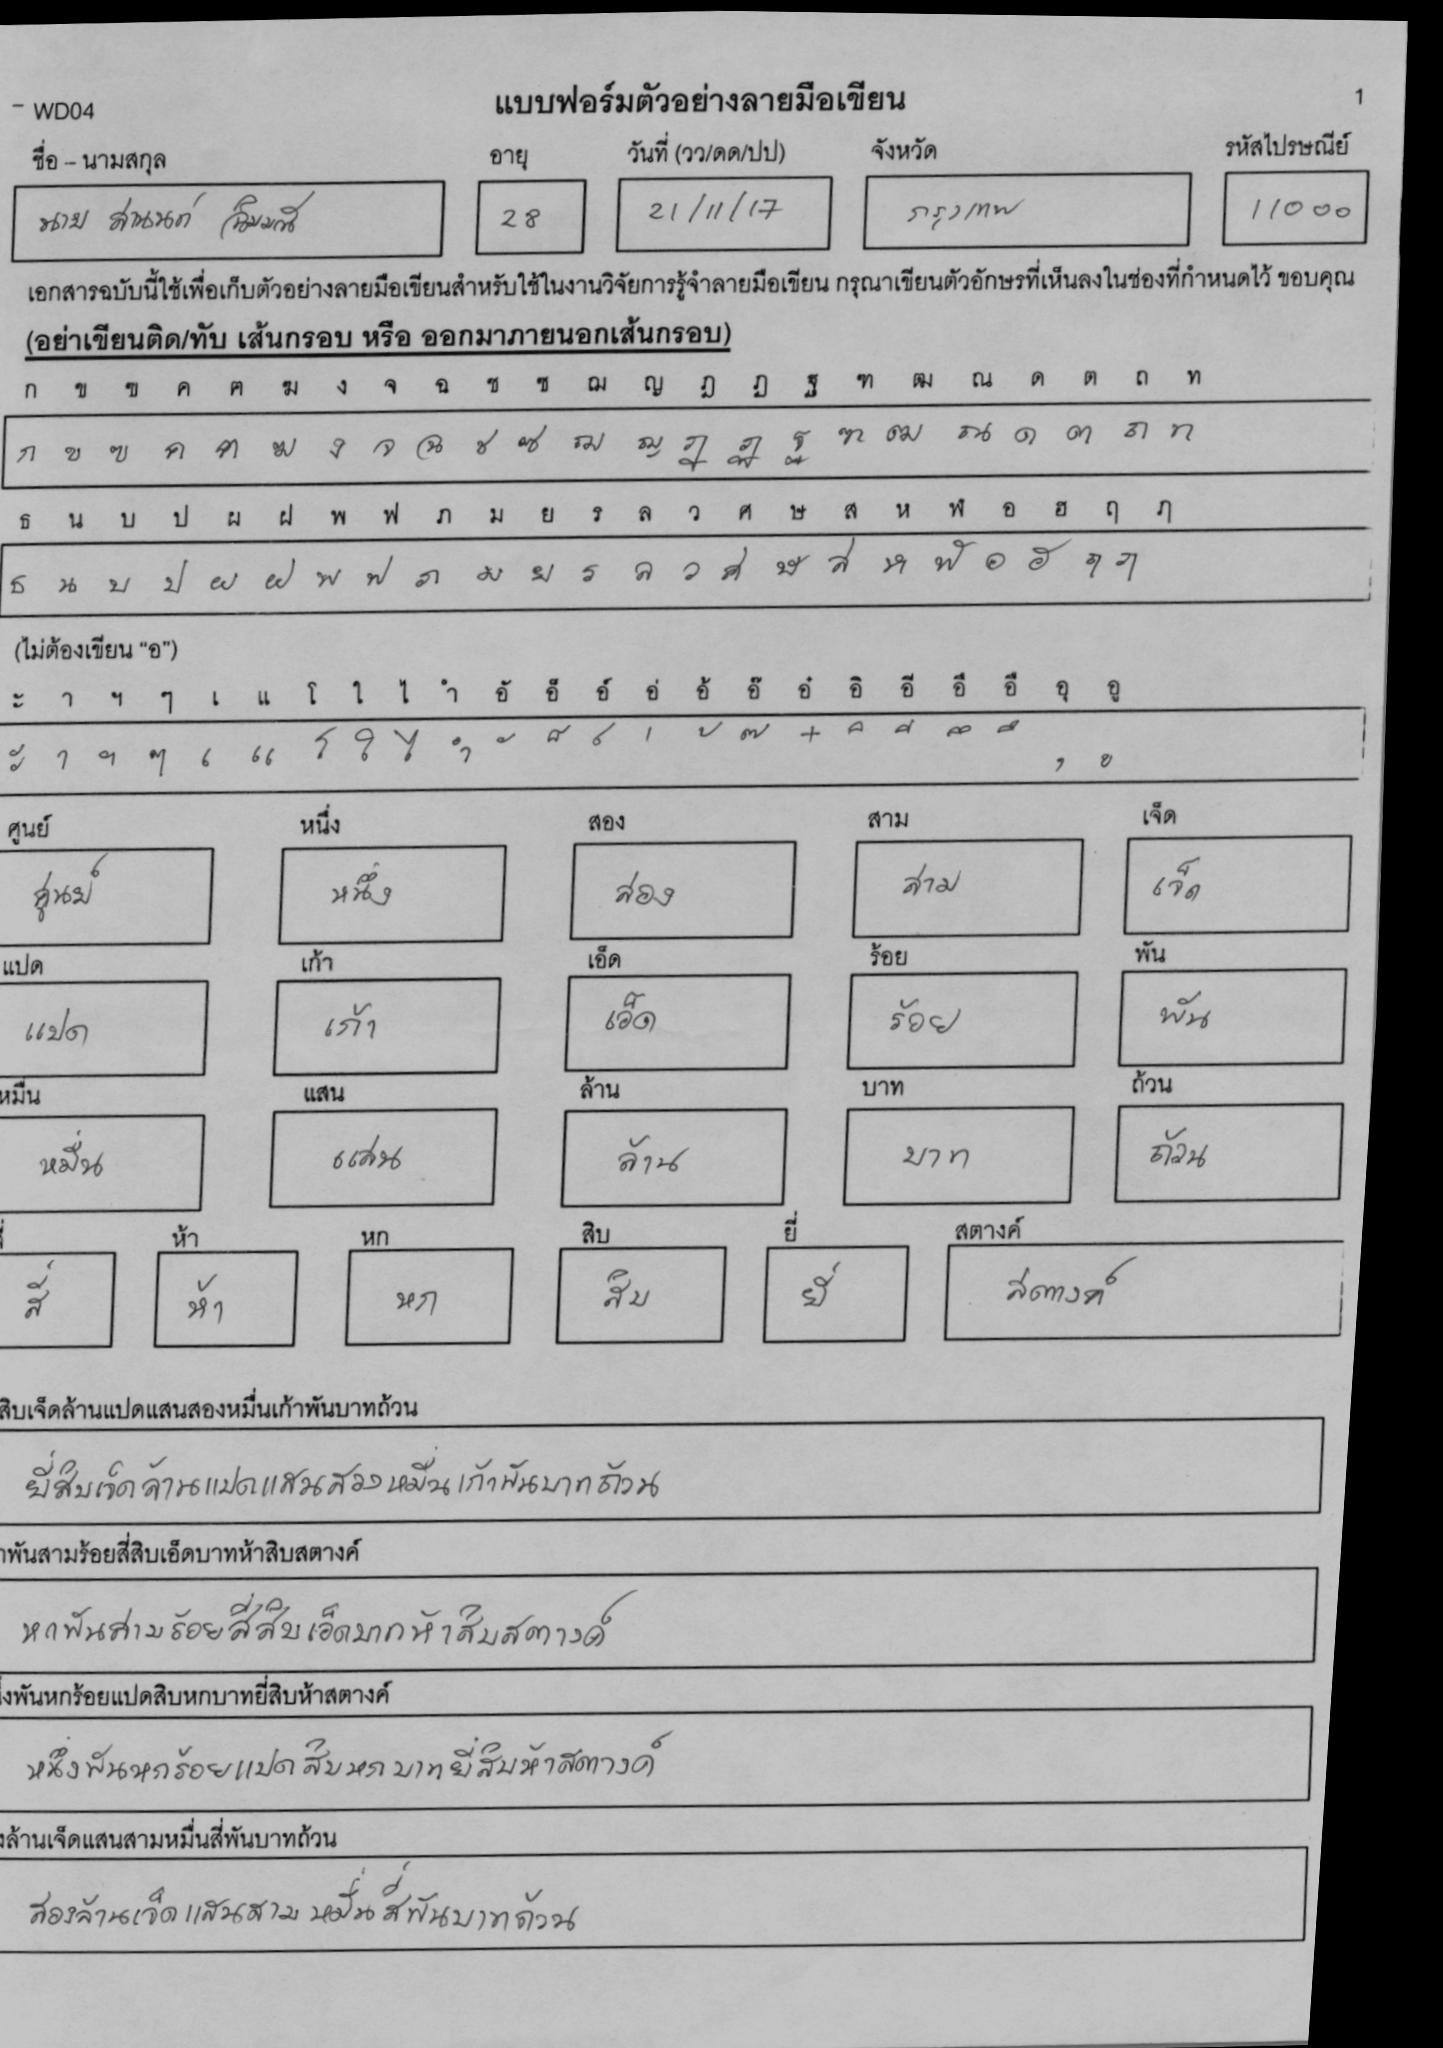 WD04 แบบฟอร์มตัวอย่างลายมือเขียน 1
ชื่อ – นามสกุล อายุ วันที่ (วว/ดด/ปป) จังหวัด รหัสไปรษณีย์
นาย 28 21/11/17 กรุงเทพ 11000
เอกสารฉบับนี้ใช้เพื่อเก็บตัวอย่างลายมือเขียนสำหรับใช้ในงานวิจัยการรู้จำลายมือเขียน กรุณาเขียนตัวอักษรที่เห็นลงในช่องที่กำหนดไว้ ขอบคุณ
(อย่าเขียนติด/ทับ เส้นกรอบ หรือ ออกมาภายนอกเส้นกรอบ)
ก ข ฃ ค ฅ ฆ ง จ ฉ ช ซ ฌ ญ ฎ ฏ ฐ ฑ ฒ ณ ด ต ถ ท
ก ข ฃ ค ฅ ฆ ง จ ฉ ช ซ ฌ ญ ฎ ฏ ฐ ฑ ฒ ณ ด ต ถ ท
ธ น บ ป ผ ฝ พ ฟ ภ ม ย ร ล ว ศ ษ ส ห ฬ อ ฮ ฤ ฦ
ธ น บ ป ผ ฝ พ ฟ ภ ม ย ร ล ว ศ ษ ส ห ฬ อ ฮ ฤ ฦ
(ไม่ต้องเขียน “อ”)
ะ า ฯ ๆ เ แ โ ใ ไ ำ อั อ็ อ์ อ่ อ้ อ๊ อ๋ อิ อี อึ อื อุ อู
ะ า ฯ ๆ เ แ โ ใ ไ ำ ั ็ ์ ่ ้ ๊ ๋ ิ ี ึ ื ุ ู
ศูนย์ หนึ่ง สอง สาม เจ็ด
ศูนย์ หนึ่ง สอง สาม เจ็ด
แปด เก้า เอ็ด ร้อย พัน
แปด เก้า เอ็ด ร้อย พัน
หมื่น แสน ล้าน บาท ถ้วน
หมื่น แสน ล้าน บาท ถ้วน
ห้า หก สิบ ยี่ สตางค์
สี่ ห้า หก สิบ ยี่ สตางค์
สิบเจ็ดล้านแปดแสนสองหมื่นเก้าพันบาทถ้วน
ยี่สิบเจ็ดล้านแปดแสนสองหมื่นเก้าพันบาทถ้วน
พันสามร้อยสี่สิบเอ็ดบาทห้าสิบสตางค์
หกพันสามร้อยสี่สิบเอ็ดบาทห้าสิบสตางค์
พันหกร้อยแปดสิบหกบาทยี่สิบห้าสตางค์
หนึ่งพันหกร้อยแปดสิบหกบาทยี่สิบห้าสตางค์
ล้านเจ็ดแสนสามหมื่นสี่พันบาทถ้วน
สองล้านเจ็ดแสนสามหมื่นสี่พันบาทถ้วน